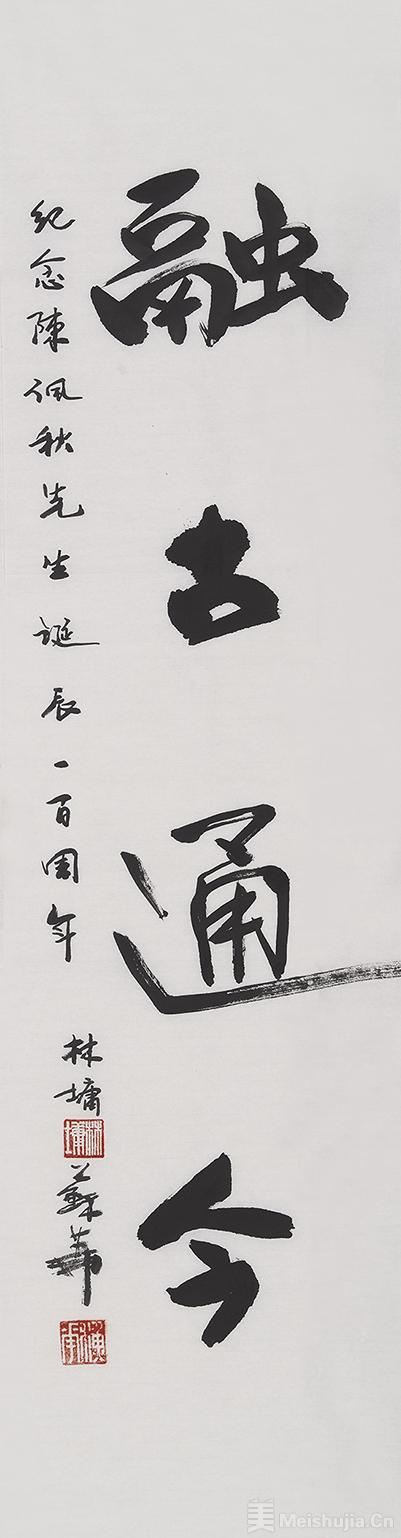 融古通今
纪念陳佩秋先生诞辰一百周年
林墉
蘇華
林墉
美 Meishujia.Cn